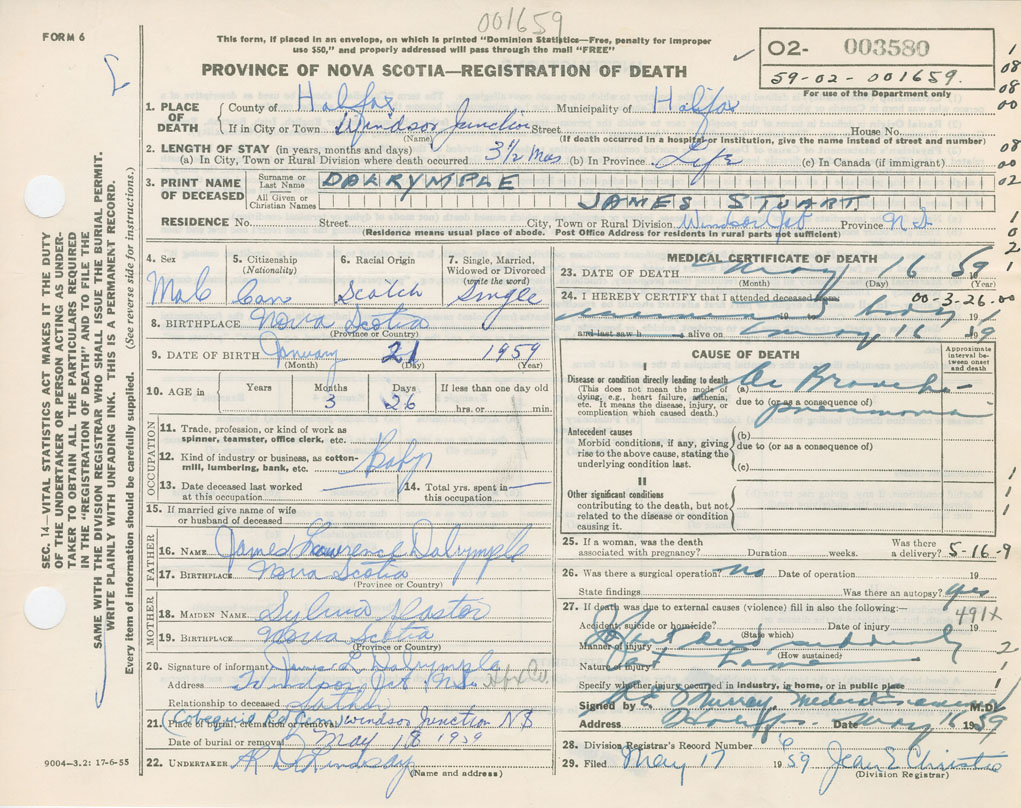 001659
FORM 6
This form, if placed in an envelope, on which is printed "Dominion Statistics—Free, penalty for improper
use $50," and properly addressed will pass through the mail "FREE"
PROVINCE OF NOVA SCOTIA—REGISTRATION OF DEATH
O2- 003580
59-02-001659.
For use of the Department only
1. PLACE OF DEATH
County of Halifax Municipality of Halifax
If in City or Town Windsor Junction Street House No.
(Name) (If death occurred in a hospital or institution, give the name instead of street and number)
2. LENGTH OF STAY (in years, months and days)
(a) In City, Town or Rural Division where death occurred 3 1/2 Mos (b) In Province Life (c) In Canada (if immigrant)
3. PRINT NAME OF DECEASED
Surname or Last Name DALRYMPLE
All Given or Christian Names JAMES STUART
RESIDENCE No. Street City, Town or Rural Division Windsor Jct Province N.S.
(Residence means usual place of abode. Post Office Address for residents in rural parts not sufficient)
4. Sex 5. Citizenship (Nationality) 6. Racial Origin 7. Single, Married, Widowed or Divorced (write the word)
Male Can Scotch Single
8. BIRTHPLACE Nova Scotia
(Province or Country)
9. DATE OF BIRTH January 21 1959
(Month) (Day) (Year)
10. AGE in Years Months Days If less than one day old
3 26 hrs. or min.
OCCUPATION
11. Trade, profession, or kind of work as
spinner, teamster, office clerk, etc.
12. Kind of industry or business, as cotton-
mill, lumbering, bank, etc. Baby
13. Date deceased last worked at this occupation 14. Total yrs. spent in this occupation
15. If married give name of wife
or husband of deceased
FATHER
16. NAME James Lawrence Dalrymple
17. BIRTHPLACE Nova Scotia
(Province or Country)
MOTHER
18. MAIDEN NAME Sylvia
19. BIRTHPLACE Nova Scotia
(Province or Country)
20. Signature of informant James L Dalrymple
Address Windsor Jct N.S. Hfx Co.
Relationship to deceased Father
21. Place of burial, cremation or removal Windsor Junction NS
Date of burial or removal May 18 1959
22. UNDERTAKER Lindsay
(Name and address)
9004-3.2: 17-6-55
MEDICAL CERTIFICATE OF DEATH
23. DATE OF DEATH May 16 59
(Month) (Day) (Year)
24. I HEREBY CERTIFY that I attended deceased from 00-3-26-00
19 body 19
and last saw h alive on May 16 19
CAUSE OF DEATH
Approximate interval between onset and death
I
Disease or condition directly leading to death
(This does not mean the mode of
dying, e.g., heart failure, asthenia,
etc. It means the disease, injury, or
complication which caused death.)
(a) Broncho
due to (or as a consequence of)
pneumonia
Antecedent causes
Morbid conditions, if any, giving
rise to the above cause, stating the
underlying condition last.
(b)
due to (or as a consequence of)
(c)
II
Other significant conditions
contributing to the death, but not
related to the disease or condition
causing it.
25. If a woman, was the death associated with pregnancy? Duration weeks. Was there a delivery? 5-16-9
26. Was there a surgical operation? no Date of operation 19
State findings Was there an autopsy? yes
27. If death was due to external causes (violence) fill in also the following:—
491X
Accident, suicide or homicide? Date of injury 19
(State which)
Manner of injury suddenly
(How sustained)
Nature of injury
Specify whether injury occurred in industry, in home, or in public place
Signed by Murray Medical Examiner M.D.
Address Halifax Date May 16 1959
28. Division Registrar's Record Number 6
29. Filed May 17 1959 Jean E Christie
(Division Registrar)
SEC. 14—VITAL STATISTICS ACT MAKES IT THE DUTY
OF THE UNDERTAKER OR PERSON ACTING AS UNDER-
TAKER TO OBTAIN ALL THE PARTICULARS REQUIRED
IN THE "REGISTRATION OF DEATH" AND TO FILE THE
SAME WITH THE DIVISION REGISTRAR WHO SHALL ISSUE THE BURIAL PERMIT.
WRITE PLAINLY WITH UNFADING INK. THIS IS A PERMANENT RECORD.
Every item of information should be carefully supplied. (See reverse side for instructions.)
1
08
08
00
08
00
02
1
0
2
1
1
1
1
1
2
1